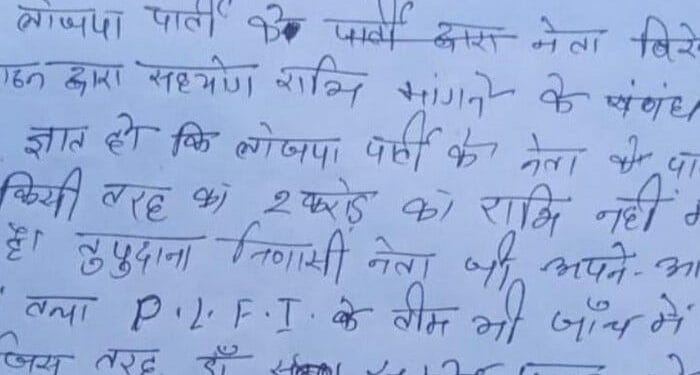 लोजपा पार्टी के पार्टी द्वारा नेता बिरे
द्वारा सहयोग राशि मांगने के संबंध
ज्ञात हो कि लोजपा पार्टी के नेता के पा
किसी तरह का 2 करोड़ का राशि नहीं
है। तुपुदाना निवासी नेता जी अपने-आ
तथा P.L.F.I. के टीम भी जाँच में
जिस तरह